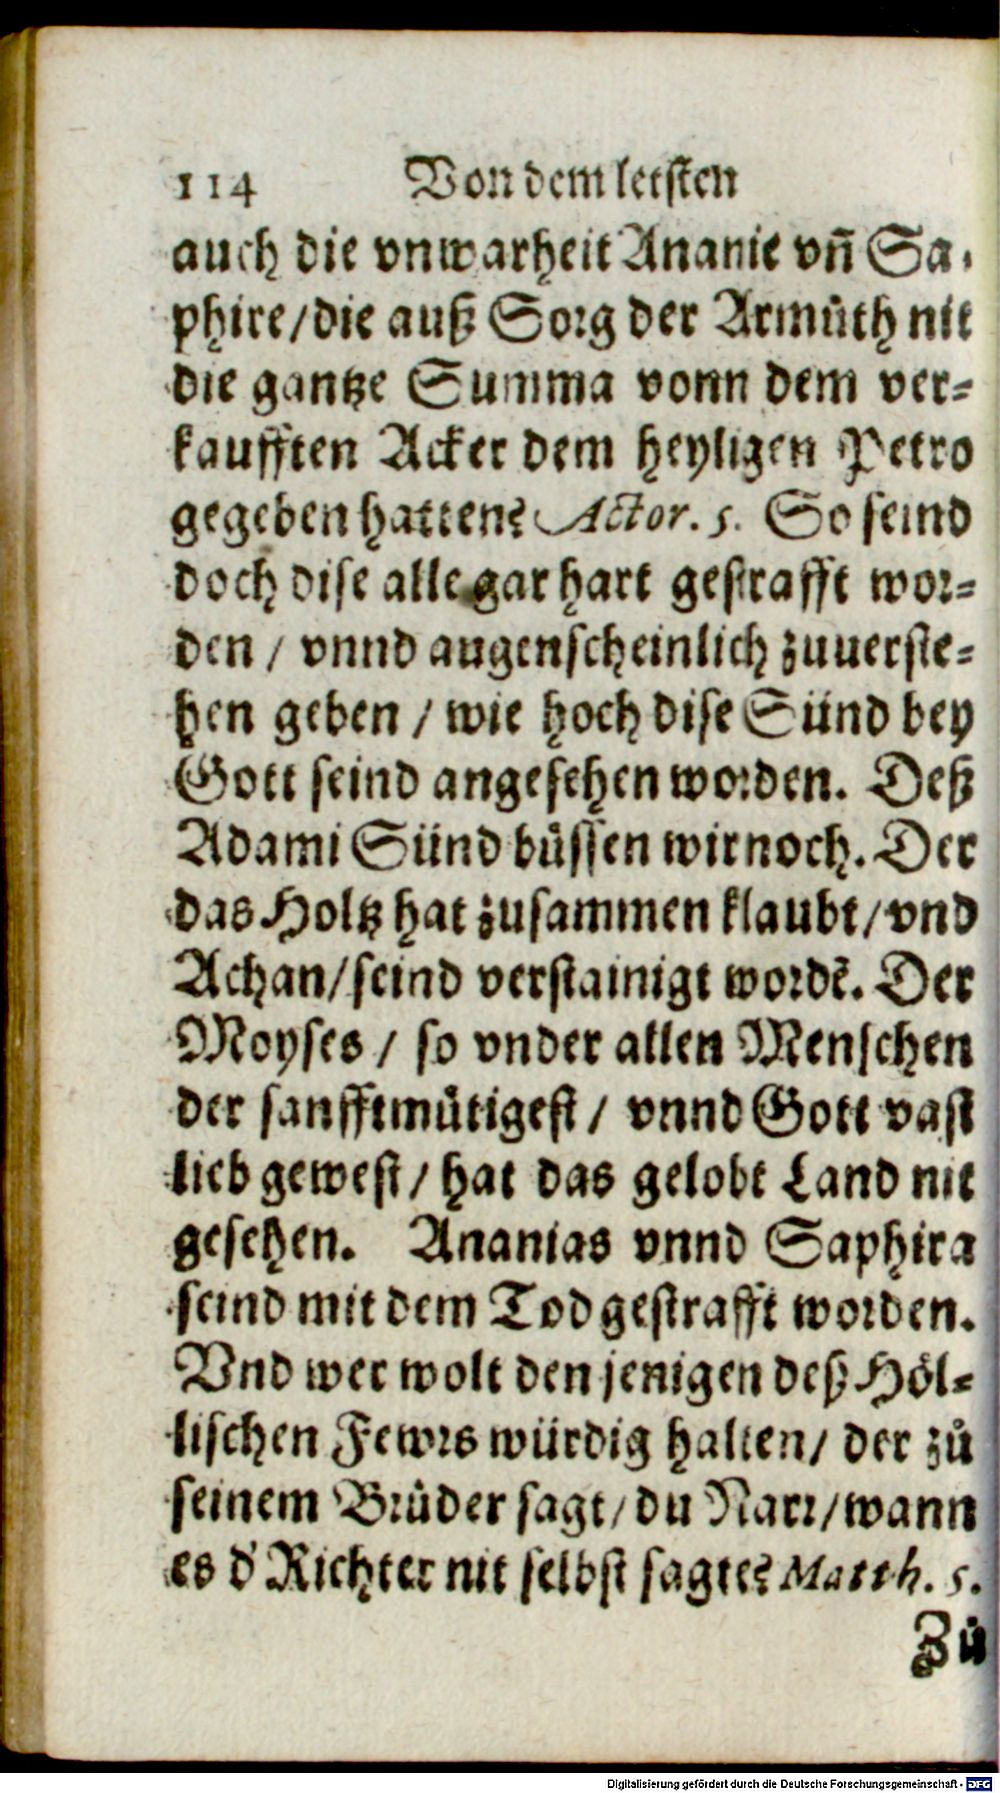 114 Von dem letsten
auch die vnwarheit Ananie vñ Sa-
phire/die auß Sorg der Armůth nit
die gantze Summa vonn dem ver-
kaufften Acker dem heyligen Petro
gegeben hatten? Actor. 5. So seind
doch dise alle gar hart gestrafft wor-
den / vnnd augenscheinlich zuuerste-
hen geben / wie hoch dise Sünd bey
Gott seind angesehen worden. Deß
Adami Sünd büssen wir noch. Der
das Holtz hat zusammen klaubt/vnd
Achan/seind verstainigt wordē. Der
Moyses / so vnder allen Menschen
der sanfftmütigest / vnnd Gott vast
lieb gewest / hat das gelobt Land nit
gesehen. Ananias vnnd Saphira
seind mit dem Tod gestrafft worden.
Vnd wer wolt den jenigen deß Höl-
lischen Fewrs würdig halten/ der zů
seinem Brůder sagt/du Narr/wann
es d' Richter nit selbst sagte? Matth. 5.
Zů
Digitalisierung gefördert durch die Deutsche Forschungsgemeinschaft - DFG